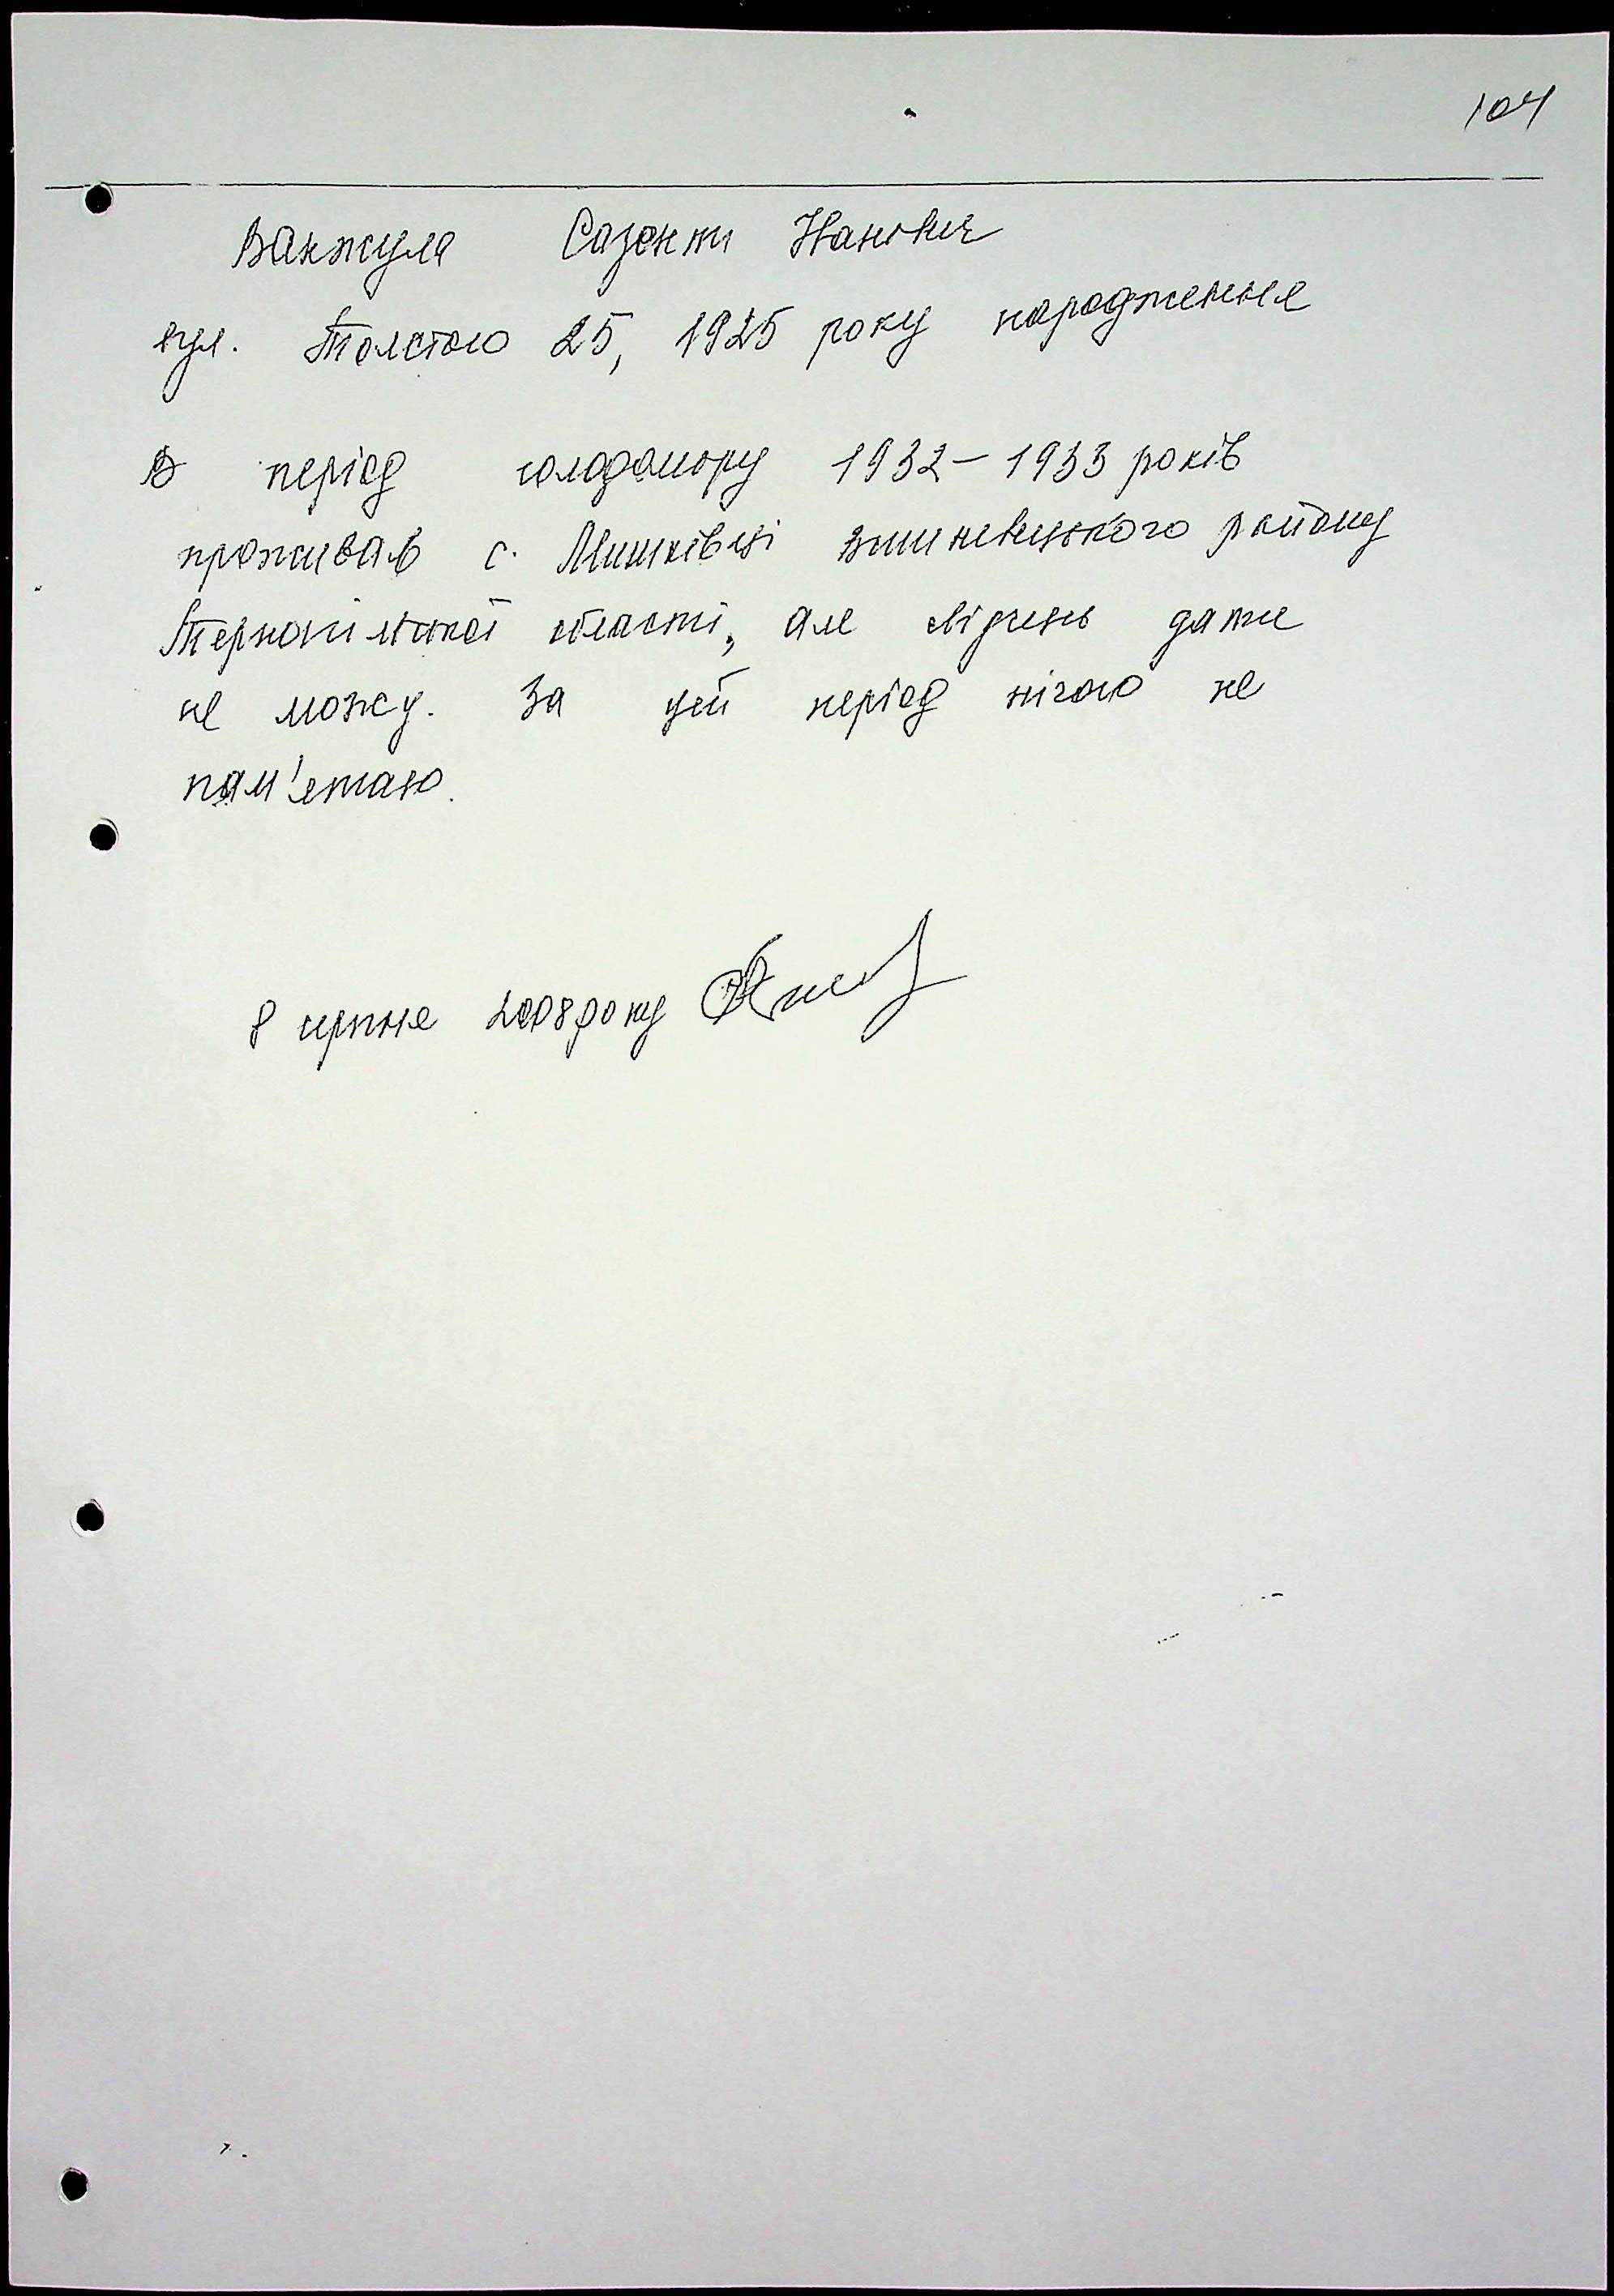 104
Ванжула Сазонт Іванович
вул. Толстого 25, 1925 року народження
В період голодомору 1932-1933 років
проживав с. Мишківці Вишневецького району
Тернопільської області, але свідчень дати
не можу. За цей період нічого не
пам'ятаю.
8 серпня 2008 року